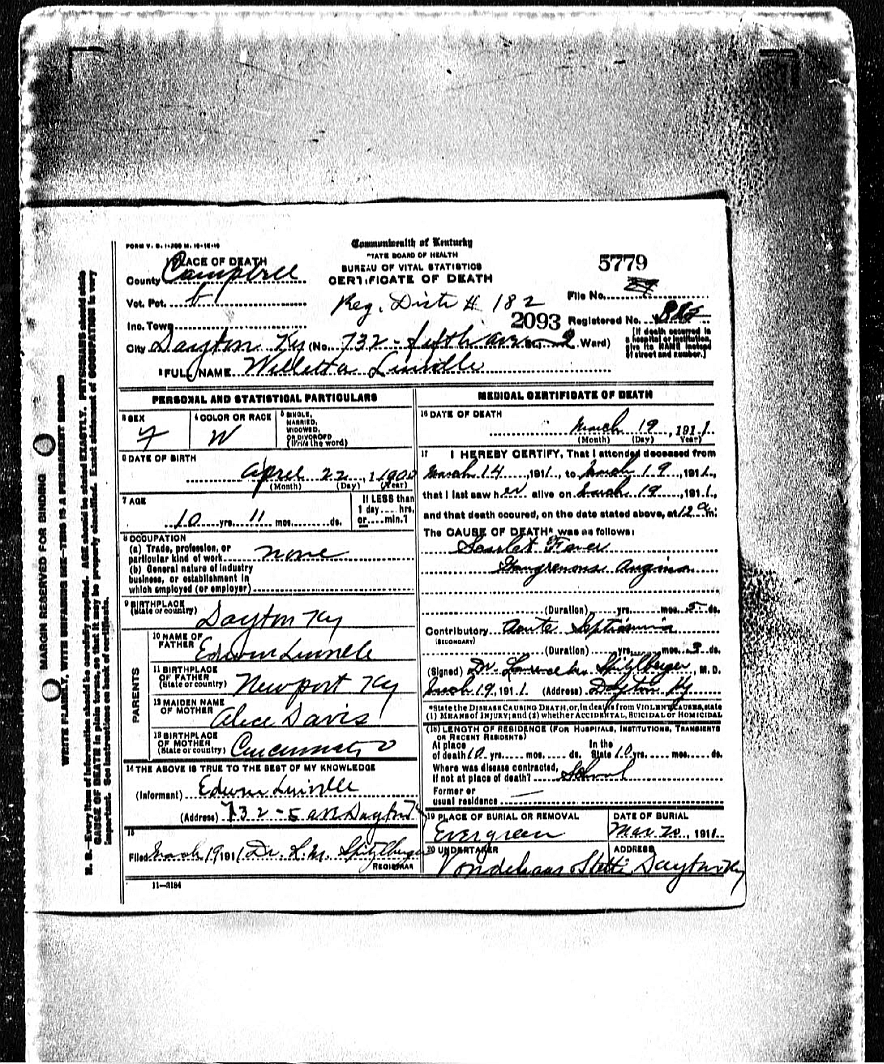 FORM V. S. 1-200 M. 10-15-10
Commonwealth of Kentucky
STATE BOARD OF HEALTH
BUREAU OF VITAL STATISTICS
CERTIFICATE OF DEATH
PLACE OF DEATH
County Campbell
Vot. Pct. 6
Reg. Distr # 182
5779
File No.
Inc. Town
2093 Registered No.
City Dayton Ky (No. 732 - fifth ave 2 Ward)
[If death occurred in a hospital or institution, give its NAME instead of street and number.]
2 FULL NAME Willetta Linville
PERSONAL AND STATISTICAL PARTICULARS
3 SEX F
4 COLOR OR RACE W
5 SINGLE, MARRIED, WIDOWED, OR DIVORCED (Write the word)
6 DATE OF BIRTH
April 22, 1900
(Month) (Day) (Year)
7 AGE
10 yrs. 11 mos. ds.
If LESS than 1 day hrs. or min.?
8 OCCUPATION
(a) Trade, profession, or particular kind of work none
(b) General nature of industry business, or establishment in which employed (or employer)
9 BIRTHPLACE (State or country) Dayton Ky
PARENTS
10 NAME OF FATHER Edwin Linville
11 BIRTHPLACE OF FATHER (State or country) Newport Ky
12 MAIDEN NAME OF MOTHER Alice Davis
13 BIRTHPLACE OF MOTHER (State or country) Cincinnati O
14 THE ABOVE IS TRUE TO THE BEST OF MY KNOWLEDGE
(Informant) Edwin Linville
(Address) 732 - 5 ave Dayton
15
Filed March 19 1911 Dr. L. M. Spitzlberger
REGISTRAR
11-3184
MEDICAL CERTIFICATE OF DEATH
16 DATE OF DEATH
March 19, 1911
(Month) (Day) (Year)
17 I HEREBY CERTIFY, That I attended deceased from
March 14, 1911, to March 19, 1911,
that I last saw her alive on March 19, 1911,
and that death occured, on the date stated above, at 12 m.
The CAUSE OF DEATH* was as follows:
Scarlet Fever
Gangrenous Angina
(Duration) yrs. mos. 5 ds.
Contributory Acute Septicemia
(SECONDARY)
(Duration) yrs. mos. ds.
(Signed) Dr. Spitzlberger, M. D.
March 19, 1911 (Address) Dayton Ky
*State the DISEASE CAUSING DEATH, or, in deaths from VIOLENT CAUSES, state
(1) MEANS OF INJURY; and (2) whether ACCIDENTAL, SUICIDAL or HOMICIDAL
(18) LENGTH OF RESIDENCE (FOR HOSPITALS, INSTITUTIONS, TRANSIENTS OR RECENT RESIDENTS)
At place of death 10 yrs. mos. ds. In the State 10 yrs. mos. ds.
Where was disease contracted, If not at place of death? School
Former or usual residence
19 PLACE OF BURIAL OR REMOVAL
Evergreen
DATE OF BURIAL
Mar 20, 1911
20 UNDERTAKER
ADDRESS
Dayton Ky
MARGIN RESERVED FOR BINDING
WRITE PLAINLY, WITH UNFADING INK—THIS IS A PERMANENT RECORD
N. B.—Every item of information should be carefully supplied. AGE should be stated EXACTLY. PHYSICIANS should state
CAUSE OF DEATH in plain terms, so that it may be properly classified. Exact statement of OCCUPATION is very
important. See instructions on back of certificate.